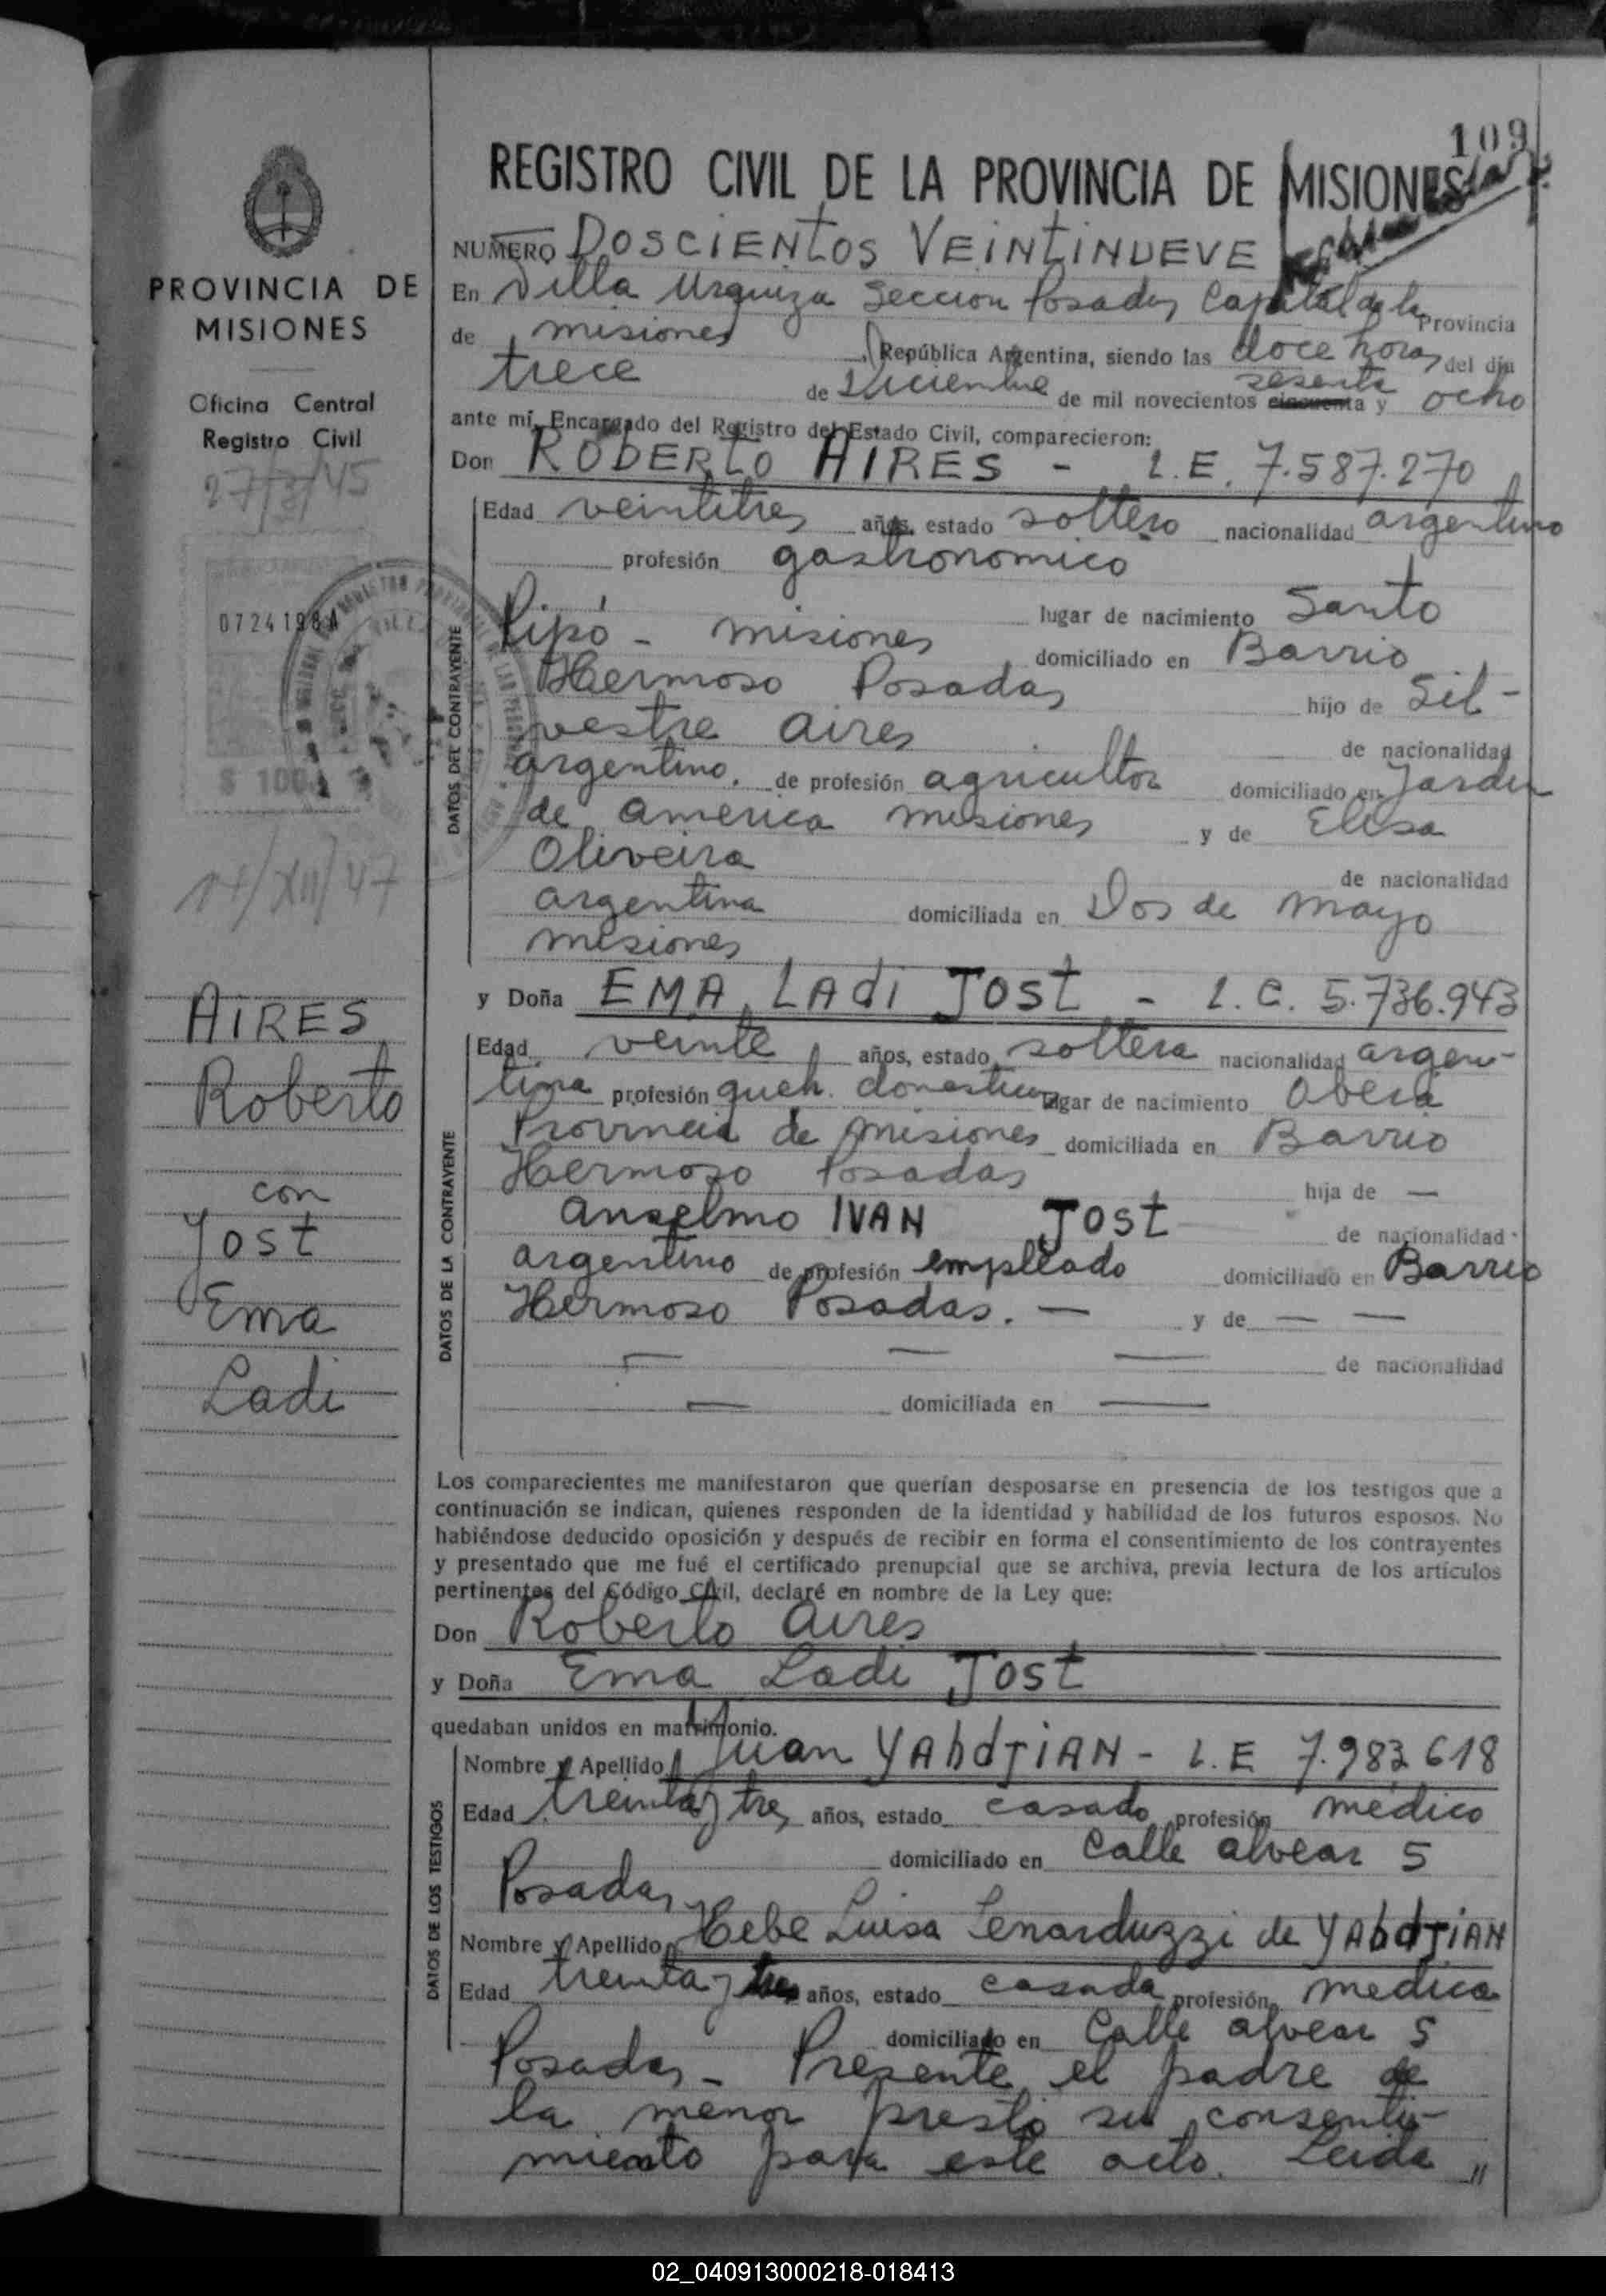 109
REGISTRO CIVIL DE LA PROVINCIA DE MISIONES
NUMERO DOSCIENTOS VEINTINUEVE
En Villa Urquiza Seccion Posadas Capital de la Provincia
de misiones República Argentina, siendo las doce horas del dia
trece de Diciembre de mil novecientos cincuenta sesenta y ocho
ante mí, Encargado del Registro del Estado Civil, comparecieron:
Don ROBERTO AIRES - L.E. 7.587.270
Edad veintitres años, estado soltero nacionalidad argentino
profesión gastronomico
lugar de nacimiento Santo
Pipó - misiones domiciliado en Barrio
Hermoso Posadas hijo de Sil-
vestre Aires de nacionalidad
argentino. de profesión agricultor domiciliado en Jardin
de America misiones y de Elisa
Oliveira de nacionalidad
argentina domiciliada en Dos de Mayo
misiones
y Doña EMA LADI JOST - L.C. 5.736.943
Edad veinte años, estado soltera nacionalidad argen-
tina profesión queh. domesticos lugar de nacimiento Oberá
Provincia de Misiones domiciliada en Barrio
Hermoso Posadas hija de —
Anselmo IVAN JOST de nacionalidad
argentino de profesión empleado domiciliado en Barrio
Hermoso Posadas. — y de — —
— — — de nacionalidad
— domiciliada en —
Los comparecientes me manifestaron que querían desposarse en presencia de los testigos que a
continuación se indican, quienes responden de la identidad y habilidad de los futuros esposos. No
habiéndose deducido oposición y después de recibir en forma el consentimiento de los contrayentes
y presentado que me fué el certificado prenupcial que se archiva, previa lectura de los artículos
pertinentes del Código Civil, declaré en nombre de la Ley que:
Don Roberto Aires
y Doña Ema Ladi Jost
quedaban unidos en matrimonio.
Nombre y Apellido Juan YAbdJIAN - L.E 7.983.618
Edad treinta y tres años, estado casado profesión medico
domiciliado en Calle Alvear 5
Posadas
Nombre y Apellido Hebe Luisa Lenarduzzi de YAbdJIAN
Edad treinta y tres años, estado casada profesión medica
domiciliado en Calle Alvear 5
Posadas - Presente el padre de
la menor prestó su consenti-
miento para este acto. Leida "
DATOS DEL CONTRAYENTE
DATOS DE LA CONTRAYENTE
DATOS DE LOS TESTIGOS
PROVINCIA DE
MISIONES
Oficina Central
Registro Civil
27/3/45
07241984
$ 100
17/XII/47
AIRES
Roberto
con
Jost
Ema
Ladi
02_040913000218-018413